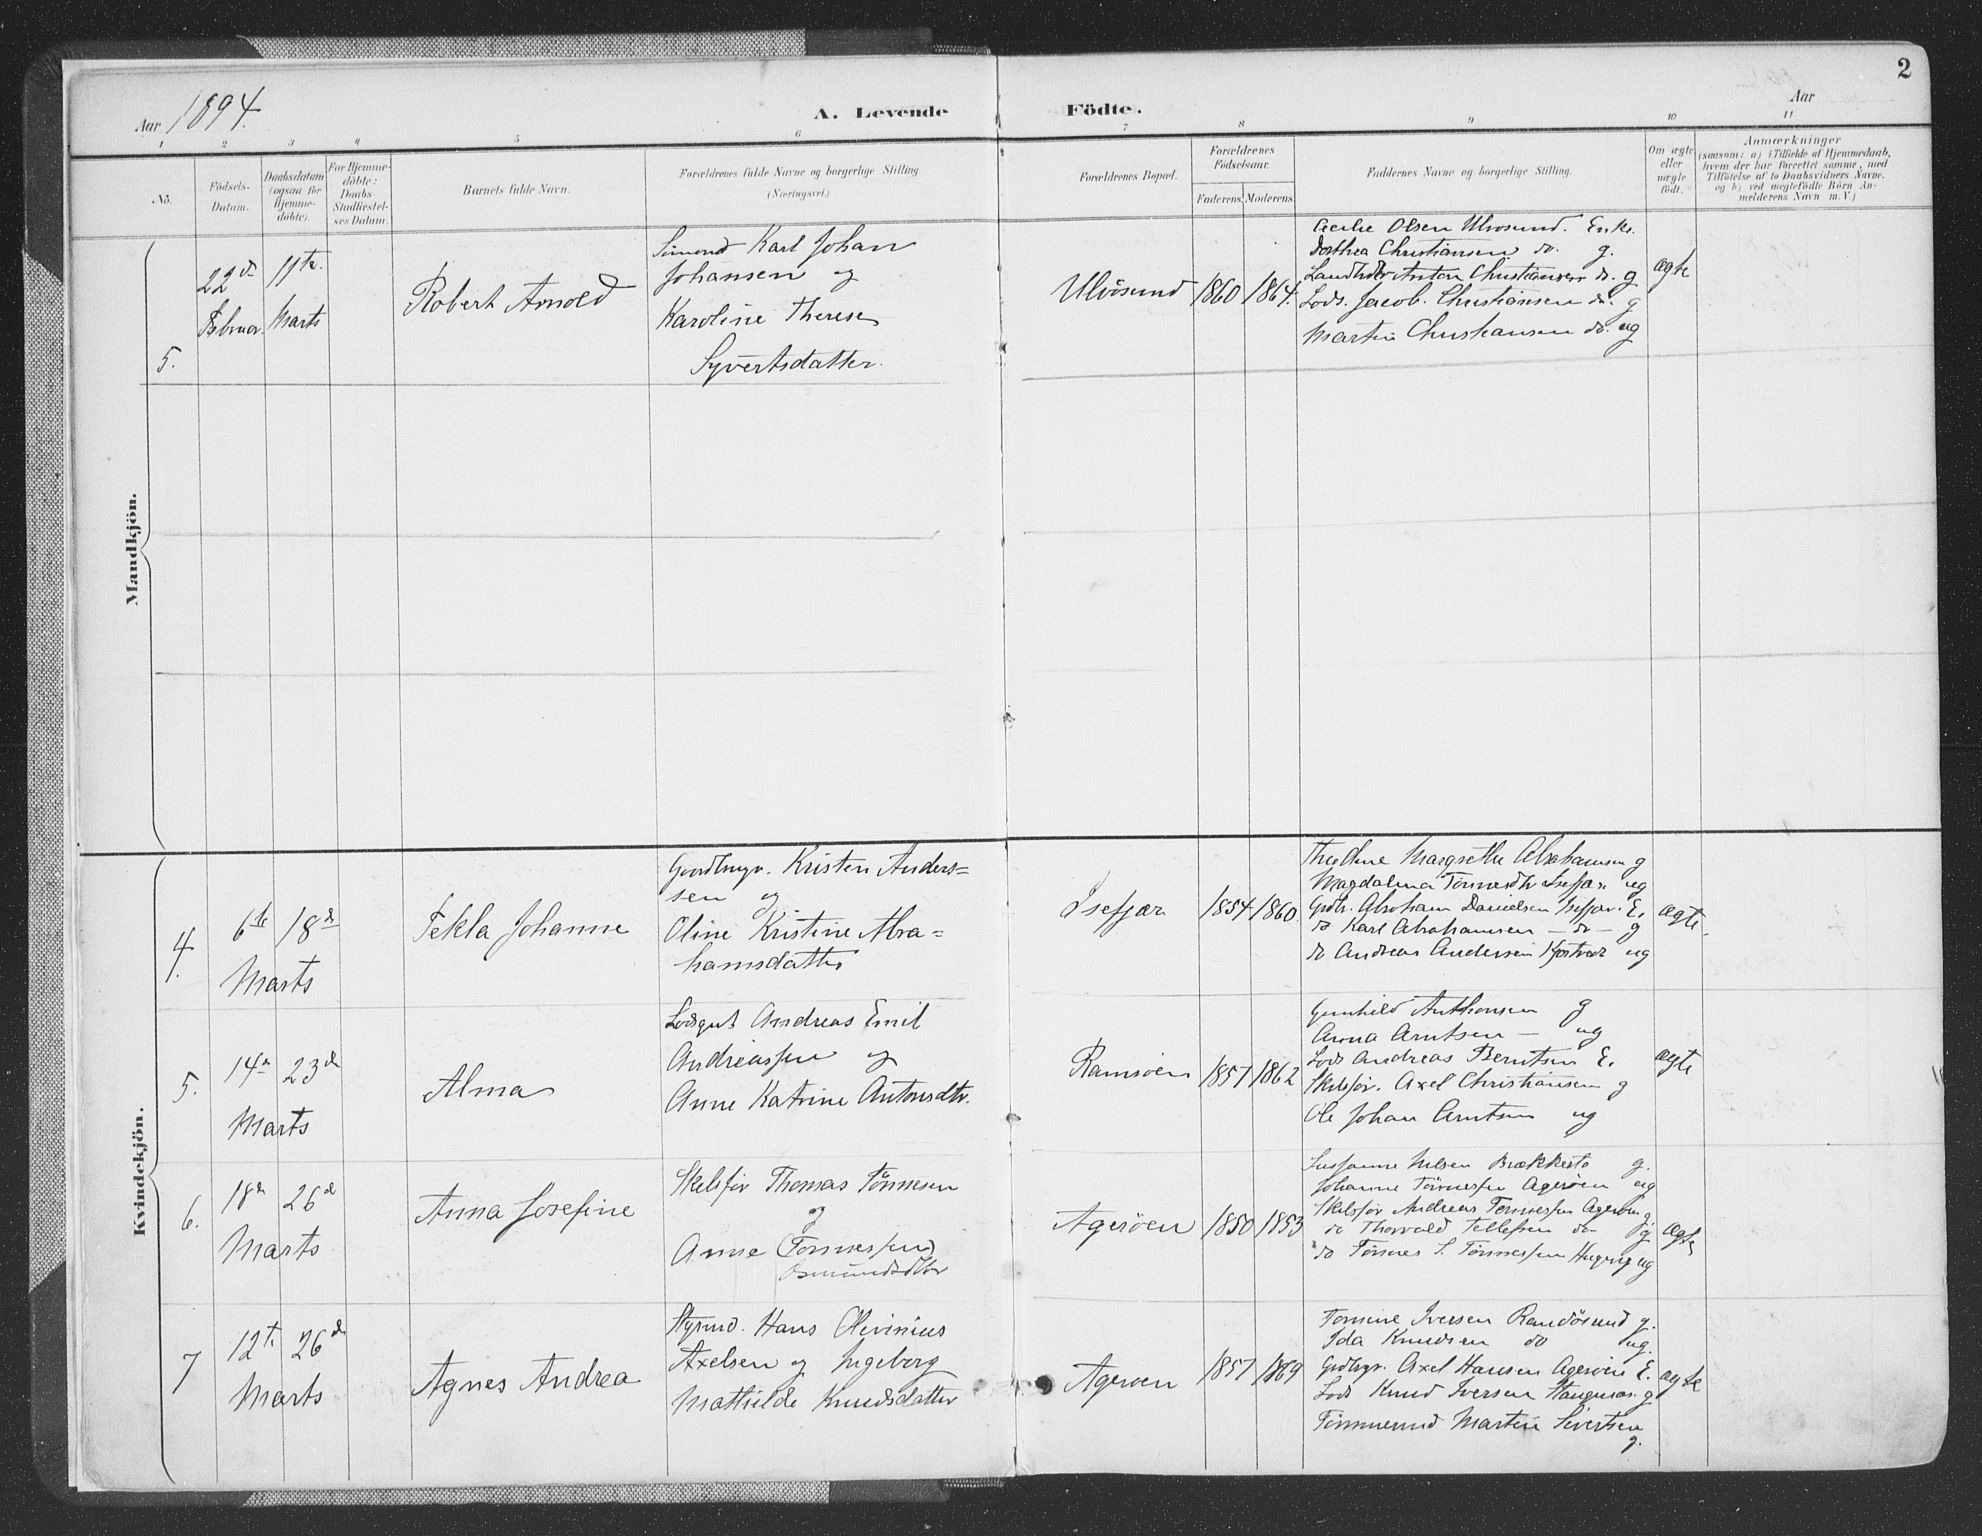 2
Aar 1894.
A. Levende Födte.
Aar
1 2 3 4 5 6 7 8 9 10 11
No.
Födsels-Datum.
Daabsdatum (ogsaa for Hjemme-döbte).
For Hjemme-döbte: Daabs Stadfæstel-ses Datum.
Barnets fulde Navn.
Forældrenes fulde Navne og borgerlige Stilling (Næringsvei.)
Forældrenes Bopæl.
Forældrenes Födselsaar.
Faderens. Moderens.
Faddernes Navne og borgerlige Stilling.
Om ægte eller uægte födt.
Anmærkninger
(saasom: a) i Tilfælde af Hjemmedaab,
hvem der har forrettet samme, med
Tilföielse af to Daabsvidners Navne.
og b) ved uægtefödte Börn An-
melderens Navn m.V.)
Mandkjön.
5.
22de Februar
11te Marts
Robert Arnold
Simond Karl Johan
Johansen og
Karoline Therese
Syvertsdatter.
Ulvösund
1860
1864.
Cecilie Olsen Ulvösund. Enke.
Dorthea Christiansen do. g.
Anton Christiansen do. g
Lods. Jacob. Christiansen do. g
Martin Christiansen do. ug
ægte
Kvindekjön.
4.
6te 18de
Marts
Tekla Johanne
Gaardbrugr. Kristen Anders=
sen og
Oline Kristine Abra=
hamsdatter
Isefjær
1854
1860
Margrethe Abrahamsen g
Magdalena Tönnesdtr Isefjær ug
Grdbr. Abraham Danielsen Isefjær. E.
do Karl Abrahamsen - do - g
do Andreas Andersen ug
ægte.
5.
14de 23de
Marts
Alma
Lodsgut Andreas Emil
Andreassen og
Anne Katrine Antonsdtr.
Ramsöen
1857
1862
Gunhild Anthonsen g
Anna Arntsen - ug
Lods Andreas Berntsen E.
Skibsför. Axel Christiansen g
Ole Johan Arntsen ug
ægte
6.
18de 26de
Marts
Anna Josefine
Skibsför Thomas Tönnesen
og
Anne (Tönnessen)
Osmundsdtr
Ageröen
1850
1853
Susanne Nilsen Brækkestö g.
Johanne Tönnessen Ageröen ug
Skibsför Andreas Tönnessen Ageröen g.
do Thorvald Tellefsen do g
do Tönnes S. Tönnessen ug
ægte
7
12te 26de
Marts
Agnes Andrea
Styrmd. Hans Olivinius
Axelsen og Ingeborg
Mathilde Knudsdatter
Ageröen
1857
1869
Tomine Iversen Randösund g.
Ida Knudsen do ug.
Grdbrgr. Axel Hansen Ageröen E.
Lods Knud Iversen g
Tömmermd Martin Sivertsen
g.
ægte